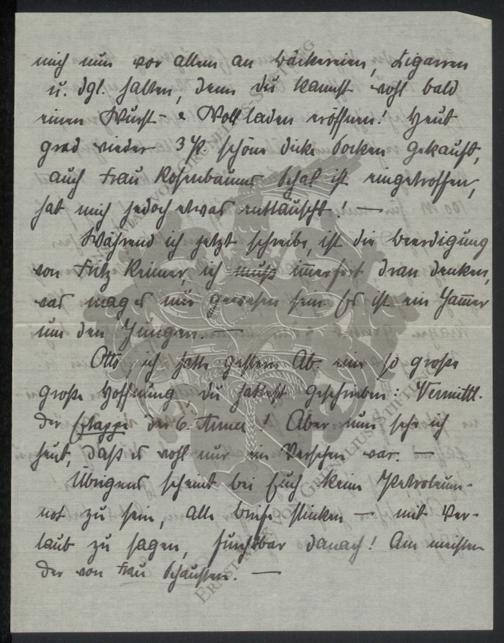 mich nun vor allem an Bäckereien, Zigarren
u. dgl. halten, denn du kannst wohl bald
einen Wurst- & Wollladen eröffnen! Heut
grad wieder 3 P. schöne dicke Socken gekauft,
auch Frau Rosenbaums Schal ist eingetroffen,
hat mich jedoch etwas enttäuscht! —
Während ich jetzt schreibe, ist die Beerdigung
von Fritz Reimer ich muß immerfort dran denken,
was mag es nur gewesen sein Es ist ein Jammer
um den Jungen. —
Otto, ich hatte gestern Ab. eine so große
große Hoffnung du hattest geschrieben: Vermittl.
der Etappe der 6. Armee! Aber nun sehe ich
heut, daß es wohl nur ein Versehen war. —
Übrigens scheint bei Euch kein Petroleum-
not zu sein, alle Briefe stinken — mit Ver-
laub zu sagen, furchtbar danach! Am meisten
der von Frau Schausten. —